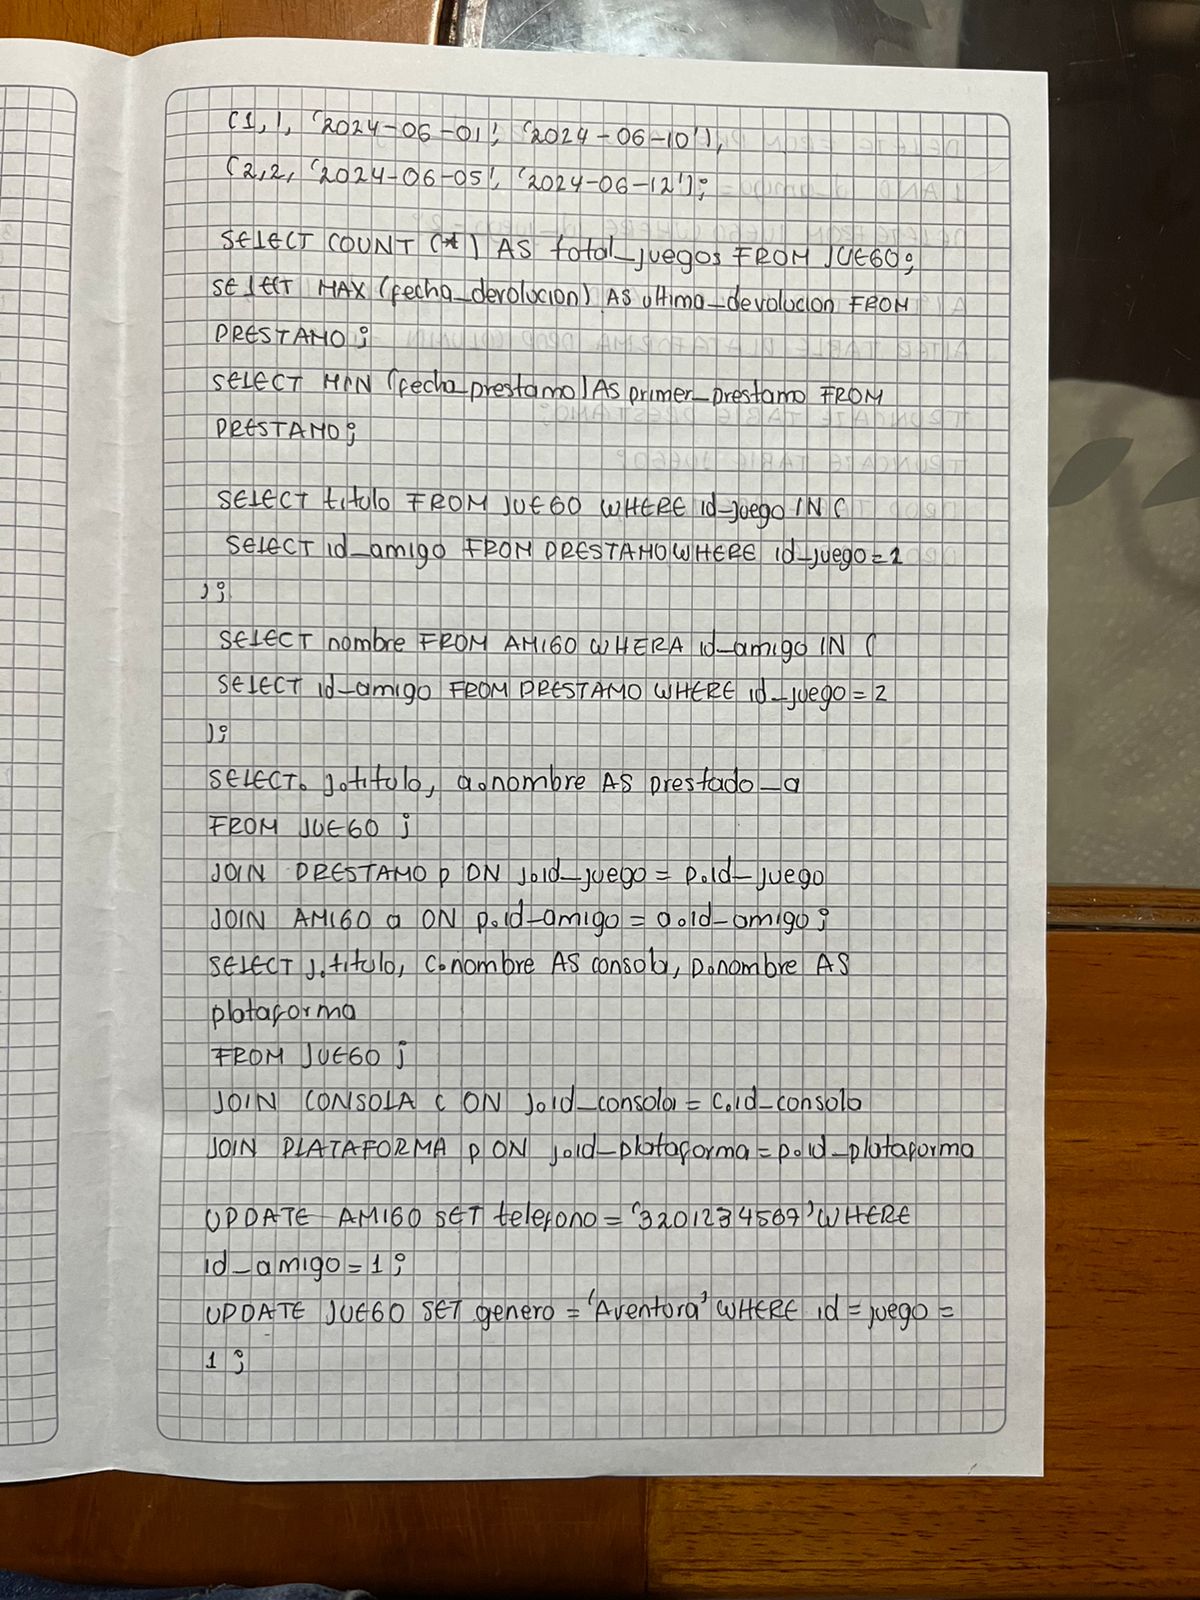 (1,1, '2024-06-01', '2024-06-10'),
(2,2, '2024-06-05', '2024-06-12');
SELECT COUNT (*) AS total_juegos FROM JUEGO;
SELECT MAX (fecha_devolucion) AS ultima_devolucion FROM
PRESTAMO;
SELECT MIN (fecha_prestamo) AS primer_prestamo FROM
PRESTAMO;
SELECT titulo FROM JUEGO WHERE id_juego IN (
SELECT id_amigo FROM PRESTAMO WHERE id_juego = 1
);
SELECT nombre FROM AMIGO WHERA id_amigo IN (
SELECT id_amigo FROM PRESTAMO WHERE id_juego = 2
);
SELECT. j.titulo, a.nombre AS prestado_a
FROM JUEGO j
JOIN PRESTAMO p ON j.id_juego = p.id_juego
JOIN AMIGO a ON p.id_amigo = a.id_amigo;
SELECT j.titulo, c.nombre AS consola, p.nombre AS
plataforma
FROM JUEGO j
JOIN CONSOLA c ON j.id_consola = c.id_consola
JOIN PLATAFORMA p ON j.id_plataforma = p.id_plataforma
UPDATE AMIGO SET telefono = '3201234567' WHERE
id_amigo = 1;
UPDATE JUEGO SET genero = 'Aventura' WHERE id = juego =
1;